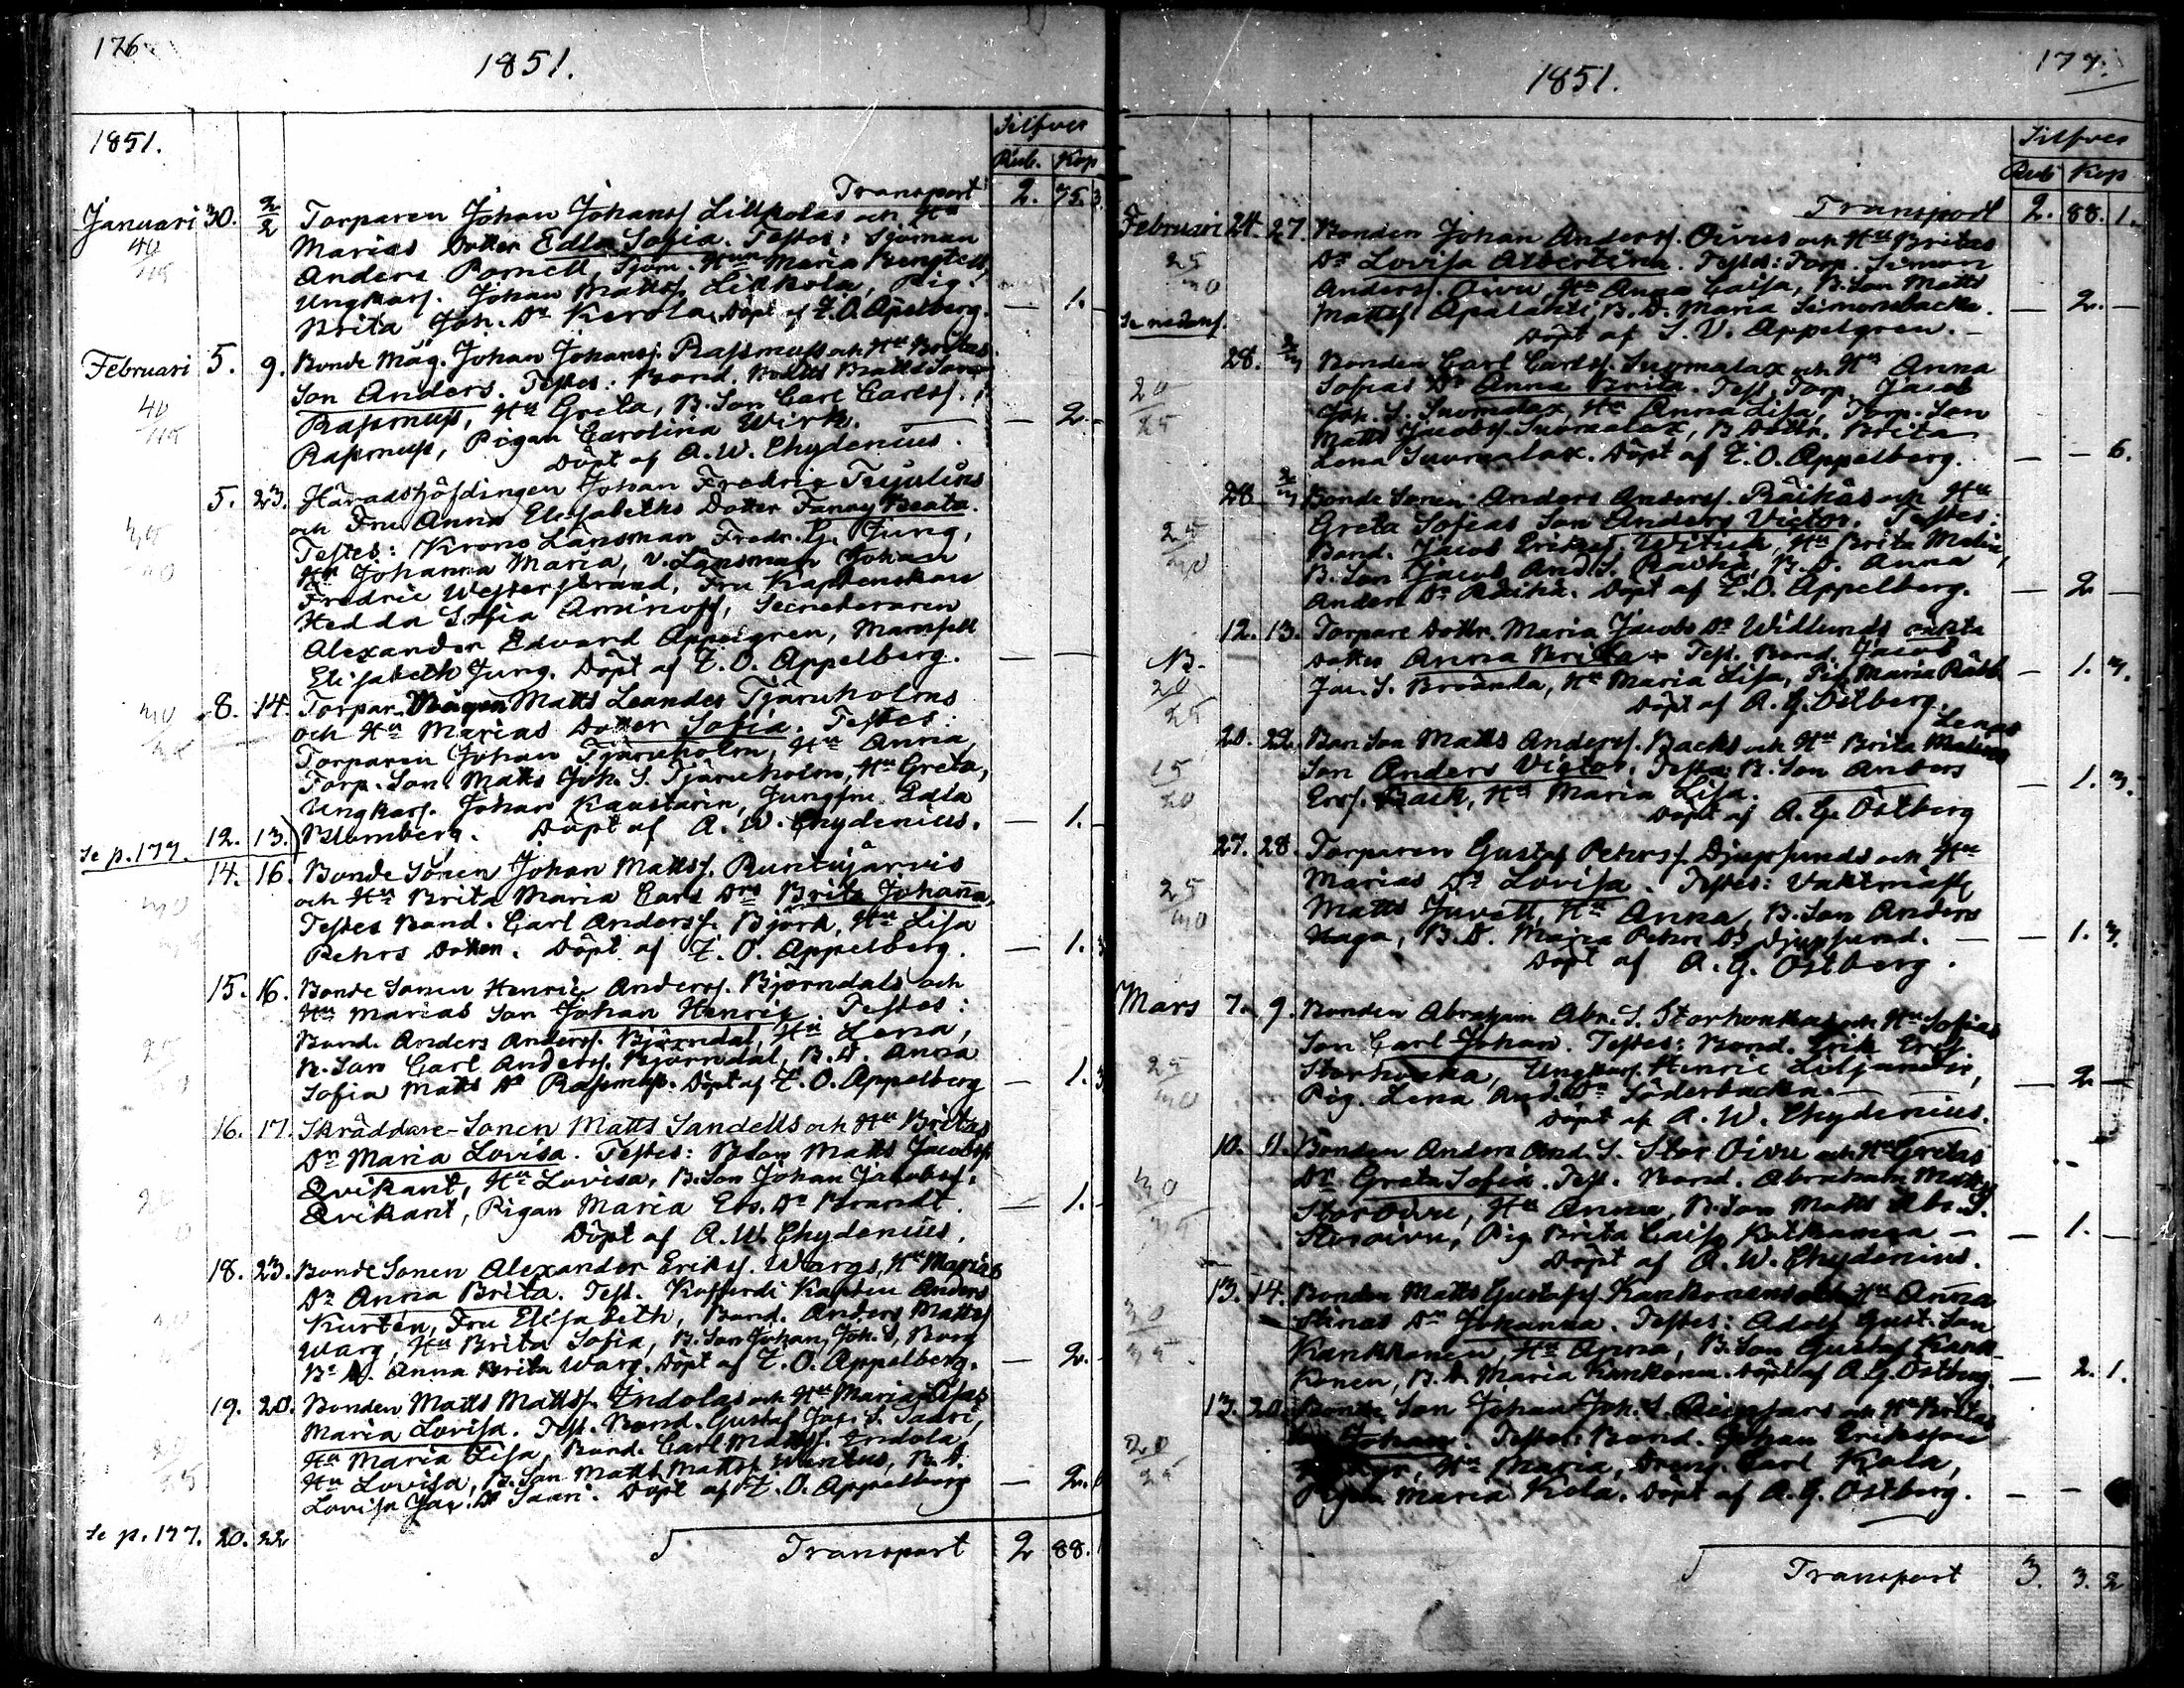 176
1851.
1851.
Silfver
Rub. Kop
Transport 2. 75. 3.
Januari 30. 2/2 Torparen Johan Johanss. Lillkolas och Hu
40/45 Marias Dotter Edla Sofia. Testes: Sjöman
Anders Pornell, Sjöm. Hun Maria Bengtell,
Ungkarl. Johan Matts. Lillkola, Pig.
Brita Joh. Dr Kerola, Döpt af F. O. Apelberg. — 1. —
Februari 5. 9. Bonde Måg. Johan Johanss. Rassmuss och Hu Britas
40/45 Son Anders. Testes: Bond. Matts Matts Son
Rassmuss, Hu Greta, B. Son Carl Carlss.
Rassmuss, Pigan Carolina Wirk. — 2. —
Döpt af A. W. Chydenius.
5. 23. Häradshöfdingen Johan Fredric
och Fru Anna Elisabeths Dotter Fanny Beata.
Testes: Krono Länsman Fredr. G. Jung,
Hu Johanna Maria, v. Länsman Johan
Fredric Westerstrand, Fru Kaptenskan
Hedda Sofia Aminoff, Secreteraren
Alexander Edvard Appelgren, Mamsell
Elisabeth Jung. Döpt af F. O. Appelberg. — —
8. 14. Torpar Mågen Matts Leander Tjäruholms
och Hu Marias Dotter Sofia. Testes:
Torparen Johan Tjäruholm, Hu Anna,
Torp. Son Matts Joh. S. Tjäruholm, Hu Greta,
Ungkarl. Johan Kaustarin, Jungfru Edla
Se p. 177. 12. 13.) Blomberg. Döpt af A. W. Chydenius. — 1. —
14. 16. Bonde Sonen Johan Mattss. Runtujärvis
och Hu Brita Maria Carls Drs Brita Johanna,
Testes Bond. Carl Anderss. Björk, Hu Lisa
Pehrs Dotter. Döpt af F. O. Appelberg. — 1. 3
15. 16. Bonde Sonen Henric Anderss. Björndals och
Hu Marias Son Johan Henric. Testes:
Bond. Anders Anderss. Björndal, Hu Lena,
B. Son Carl Anderss. Björndal, B. D. Anna
Sofia Matts Dr Rassmuss. Döpt af F. O. Appelberg — 1. 3
16. 17. Skräddare-Sonen Matts Sandells och Hu Britas
Dr Maria Lovisa. Testes: B. Son Matts Jacobss.
Qvikant, Hu Lovisa, B. Son Johan Jacobss.
Qvikant, Pigan Maria Ers. Dr Brandt. — 1. —
Döpt af A. W. Chydenius.
18. 23. Bonde Sonen Alexander Erikss. Wargs, Hu Marias
Dr Anna Brita. Test. Kofferdi Kapten Anders
Kurtén, Fru Elisabeth, Bond. Anders Mattss
Warg, Hu Brita Sofia, B. Son Johan Joh. S. Borg
B. D. Anna Brita Warg. Döpt af F. O. Appelberg. — 2. —
19. 20. Bonden Matts Mattss. Indolas och Hu Maria Lisas
Maria Lovisa. Test. Bond. Gustaf Jac. S. Saari,
Hu Maria Lisa, Bond. Carl Mattss. Indola,
Hu Lovisa, B. Son Matts Mattss. Wentus, B. D.
Lovisa Jac. Dr Saari. Döpt af F. O. Appelberg — 2.
Se p. 177. 20. 22
Transport 2 88.
177.
1851.
Silfver
Rub Kop
Transport 2. 88. 1.
Februari 24. 27. Bonden Johan Anderss. Oivus och Hu Britas
25/30 Dr Lovisa Albertina. Testes: Torp. Simon
Anderss. Oivu, Hu Anna Caisa, B. Son Matts
Se nedanf. Mattss. Apalahti, B. D. Maria Simonsbacka. — 2. —
Döpt af S. V. Appelgren.
28. 2/3 Bonden Carl Carlss. Suomalax och Hu Anna
20/25 Sofias Dr Anna Brita. Test. Torp. Jacob
Joh. S. Suomalax, Hu Anna Lisa, Torp. Son
Matts Jacobss. Suomalax, B. Dottr. Brita
Lena Suomalax. Döpt af F. O. Appelberg. — — 6.
28 2/3 Bonde Sonen Anders Anderss. Räihäs och Hu
25/30 Greta Sofias Son Anders Victor. Testes:
Bond. Jacob Erikss. Wituk, Hu Brita Malin,
B. Son Jacob And. S. Räihä, B. D. Anna
Anders Dr Räihä. Döpt af F. O. Appelberg. — 2 —
12. 13. Torpare Dottr. Maria Jacobs Dr Widlunds oäkta
NB. Dotter Anna Brita. Test. Bond. Jacob
20/25 Jac. S. Broända, Hu Maria Lisa, Pig. Maria Räbb — 1. 3.
Döpt af A. G. Östberg.
20. 22. Bon Son Matts Anderss. Backs och Hu Brita Lenas
15/20 Son Anders Victor, Testes: B. Son Anders
Erss. Back, Hu Maria Lisa. — 1. 3.
Döpt af A. G. Östberg
27. 28. Torparen Gustaf Pehrss. Djupsunds och Hu
25/30 Marias Dr Lovisa. Testes: Vaktmäst.
Matts Juvell, Hu Anna, B. Son Anders
Haga, B. D. Maria Pehrs Dr Djupsund. — 1. 3.
Döpt af A. G. Östberg.
Mars 7. 9. Bonden Abraham Abr. S. Storhonkas och Hu Sofias
25/30 Son Carl Johan. Testes: Bond. Erik Erss.
Storhonka, Ungkarl. Henric Liljander,
Pig. Lena And. Dr Söderbacka. — 2 —
Döpt af A. W. Chydenius.
10. 11. Bonden Anders And. S. Stor Oivu och Hu Gretas
30/35 Dr Greta Sofia. Test. Bond. Abraham Matts
Storoivu, Hu Anna, B. Son Matts Abr. S.
Storoivu, Pig. Brita Caisa — 1. —
Döpt af A. W. Chydenius.
13. 14. Bonden Matts Gustafs. Kankkonens och Hu Anna
30/35 Stinas Dr Johanna. Testes: Adolf Gust. Son
Kankkonen, Hu Anna, B. Son Gustaf Kank-
konen, B. D. Maria Kankkonen. Döpt af A. G. Östberg. — 2. 1.
13. 20. Bonde Son Johan Joh. S. och Hu Britas
20/25 Johan. Testes: Bond. Johan Eriksson
Hu Maria, Dräng. Carl Kola,
Pigan Maria Kola. Döpt af A. G. Östberg. — —
Transport 3. 3. 2